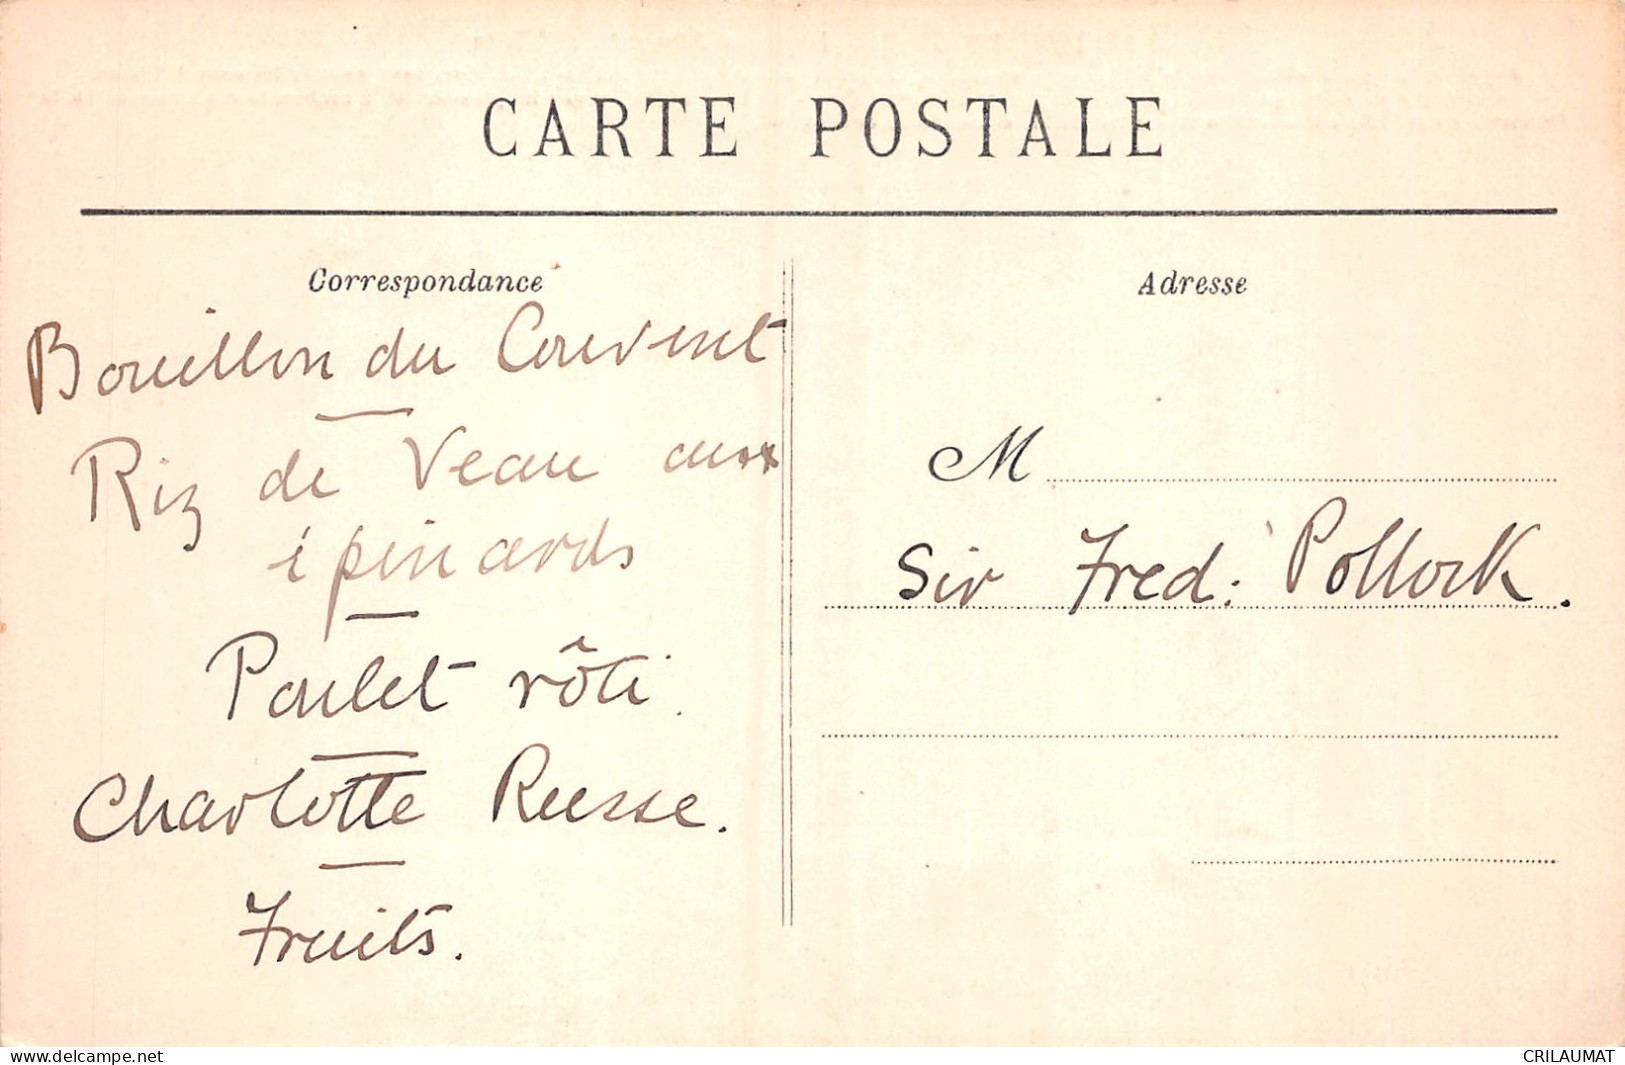 CARTE POSTALE
Correspondance
Bouillon du Couvent
Riz de Veau aux
épinards
Poulet rôti.
Charlotte Russe.
Fruits.
Adresse
M
Sir Fred: Pollock.
www.delcampe.net
CRILAUMAT